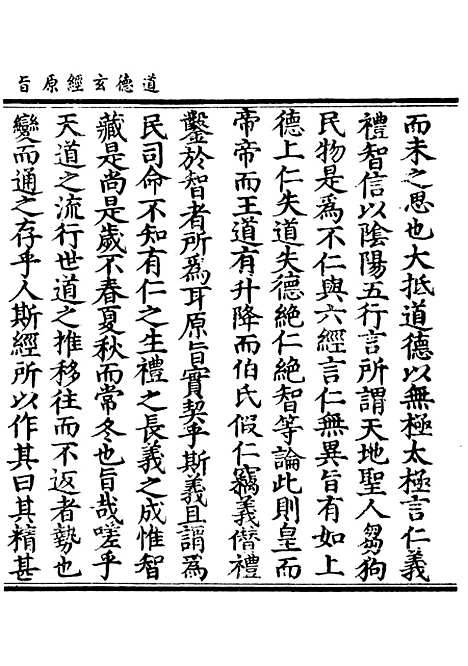 道德玄經原旨
而未之思也大抵道德以無極太極言仁義
禮智信以陰陽五行言所謂天地聖人芻狗
民物是為不仁與六經言仁無異旨有如上
德上仁失道失德絕仁絕智等論此則皇而
帝帝而王道有升降而伯氏假仁竊義僭禮
鑿於智者所為耳原旨實契乎斯義且謂為
民司命不知有仁之生禮之長義之成惟智
藏是尚是歲不春夏秋而常冬也旨哉嗟乎
天道之流行世道之推移往而不返者勢也
變而通之存乎人斯經所以作其曰其精甚